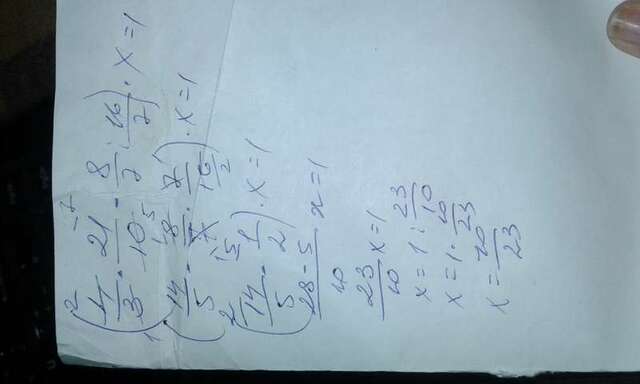 (4/3 · 21/10 - 8/7 : 16/7) · x = 1
(14/5 - 8/7 · 7/16) · x = 1
(14/5 - 1/2) · x = 1
28-5/10 x = 1
23/10 x = 1
x = 1 : 23/10
x = 1 · 10/23
x = 10/23